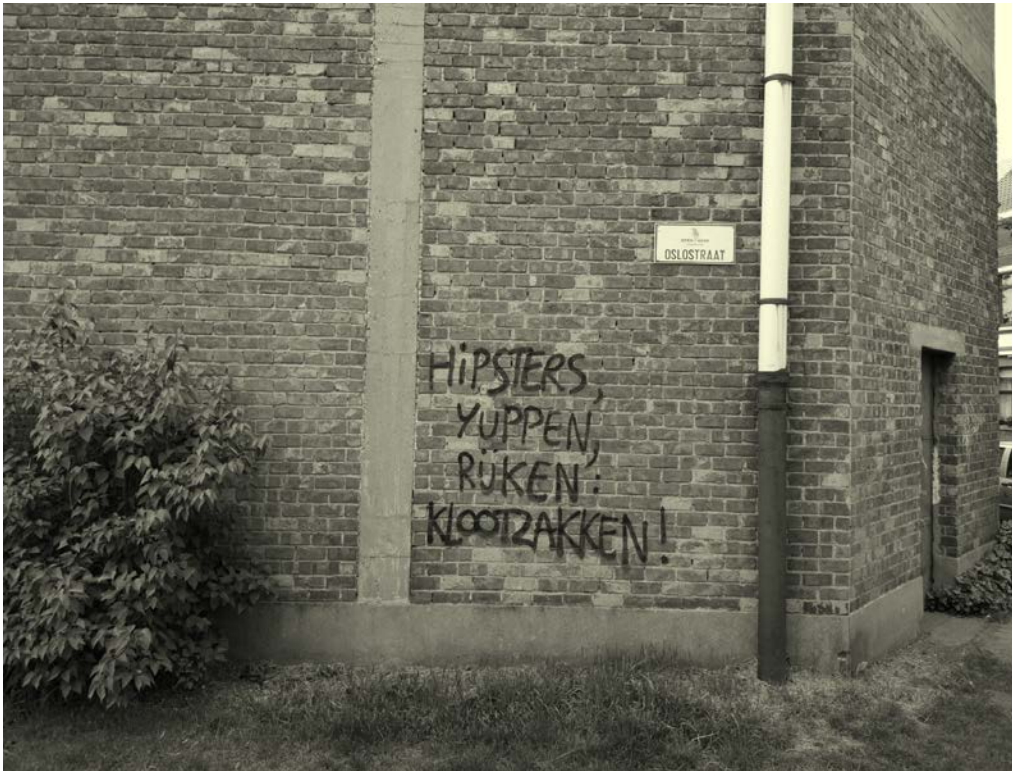 OSLOSTRAAT
HiPSTERS,
YUPPEN,
RIJKEN:
KLOOTZAKKEN!